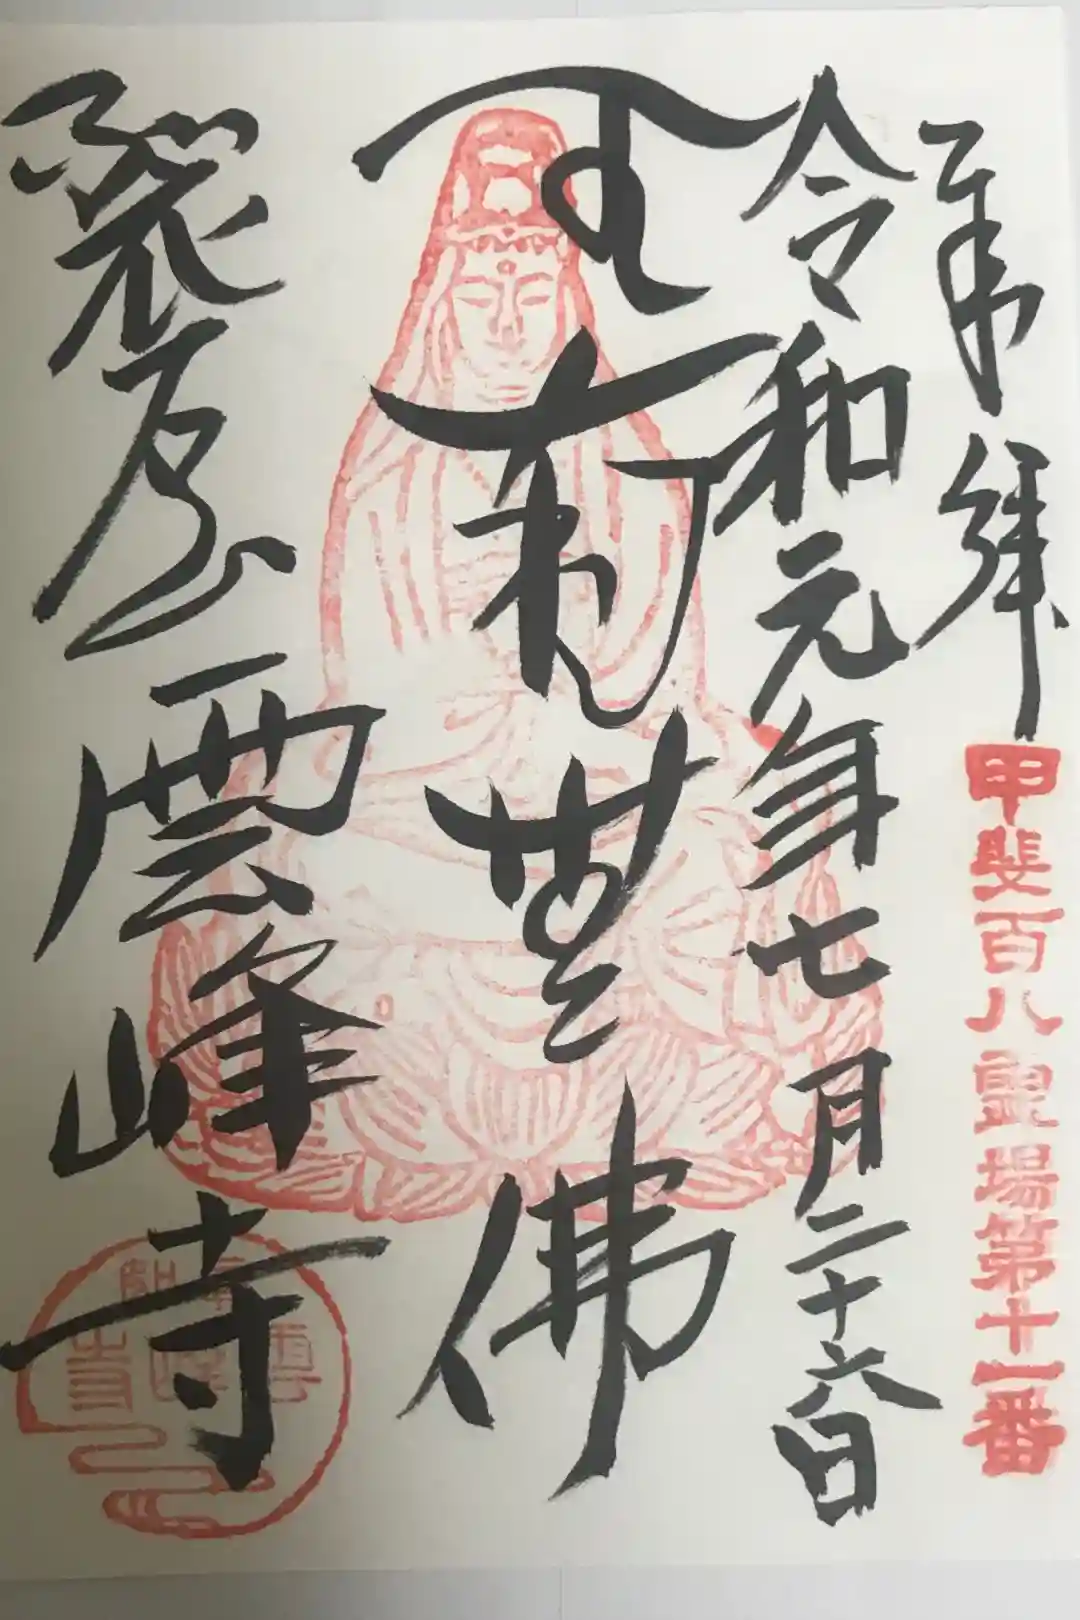 奉拜
甲斐百八靈場第十一番
令和元年七月二十六日
南無佛
裂石山雲峰寺